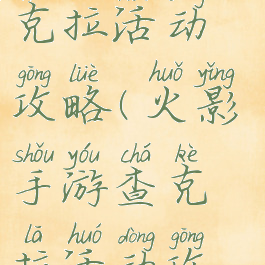 克拉活动
gōng lüè huǒ yǐng
攻略(火影
shǒu yóu chá kè
手游查克
lā huó dòng gōng
拉活动攻